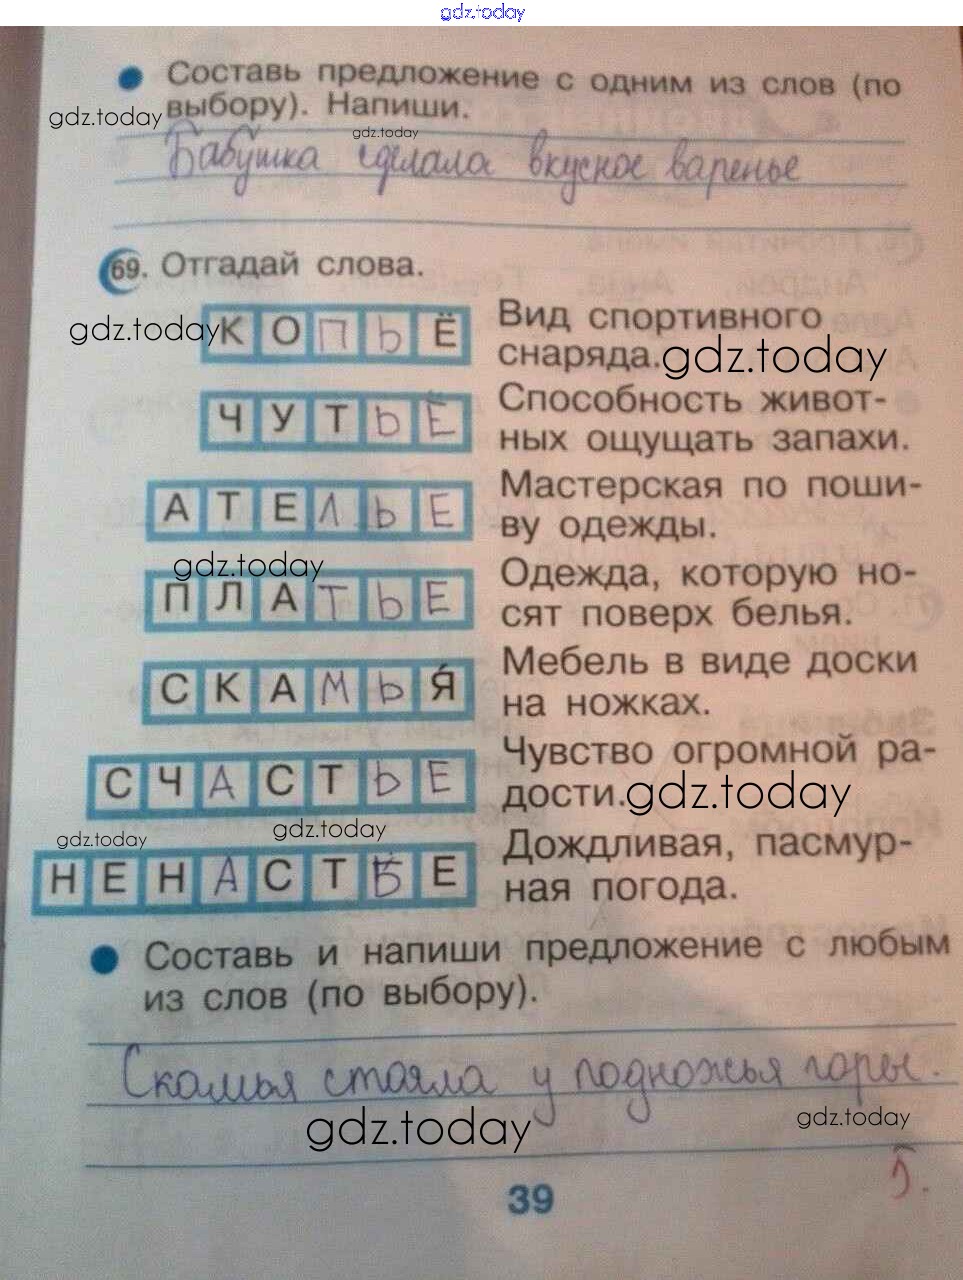 gdz.today
Составь предложение с одним из слов (по
gdz.today выбору). Напиши.
gdz.today
Бабушка сделала вкусное варенье
69. Отгадай слова.
КОПЬЁ
Вид спортивного
снаряда.
gdz.today
gdz.today
ЧУТЬЁ
Способность живот-
ных ощущать запахи.
АТЕЛЬЕ
Мастерская по поши-
ву одежды.
gdz.today
ПЛАТЬЕ
Одежда, которую но-
сят поверх белья.
СКАМЬЯ́
Мебель в виде доски
на ножках.
СЧАСТЬЕ
Чувство огромной ра-
дости.
gdz.today
gdz.today
gdz.today
НЕНАСТЬЕ
Дождливая, пасмур-
ная погода.
Составь и напиши предложение с любым
из слов (по выбору).
Скамья стояла у подножья горы.
gdz.today
gdz.today
5.
39